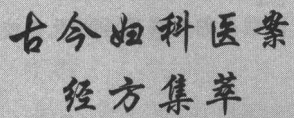 古今妇科医案
经方集萃